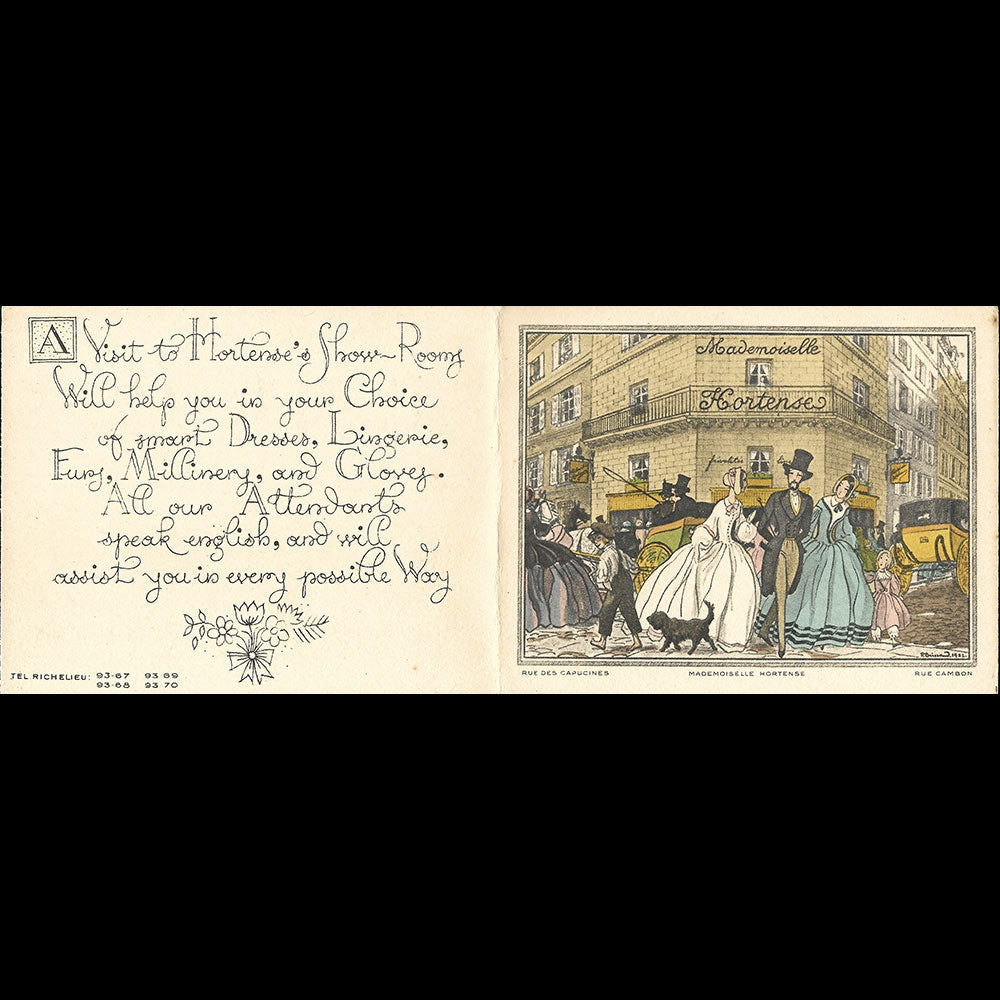 A Visit to Hortense's Show-Rooms
Will help you in your Choice
of smart Dresses, Lingerie,
Furs, Millinery, and Gloves.
All our Attendants
speak english, and will
assist you in every possible Way
TEL. RICHELIEU: 93-67 93 69
93-68 93 70
Mademoiselle
Hortense
RUE DES CAPUCINES MADEMOISELLE HORTENSE RUE CAMBON